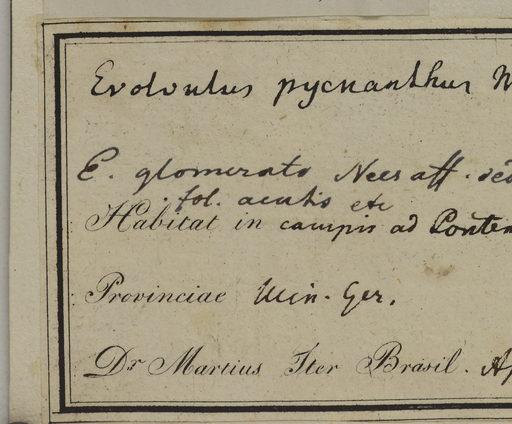 Evolvulus pycnanthus M
E. glomerato Nees aff. sed
fol. acutis etc
Habitat in campis ad Pontem
Provinciae Min. Ger.
Dr Martius Iter Brasil. Ap